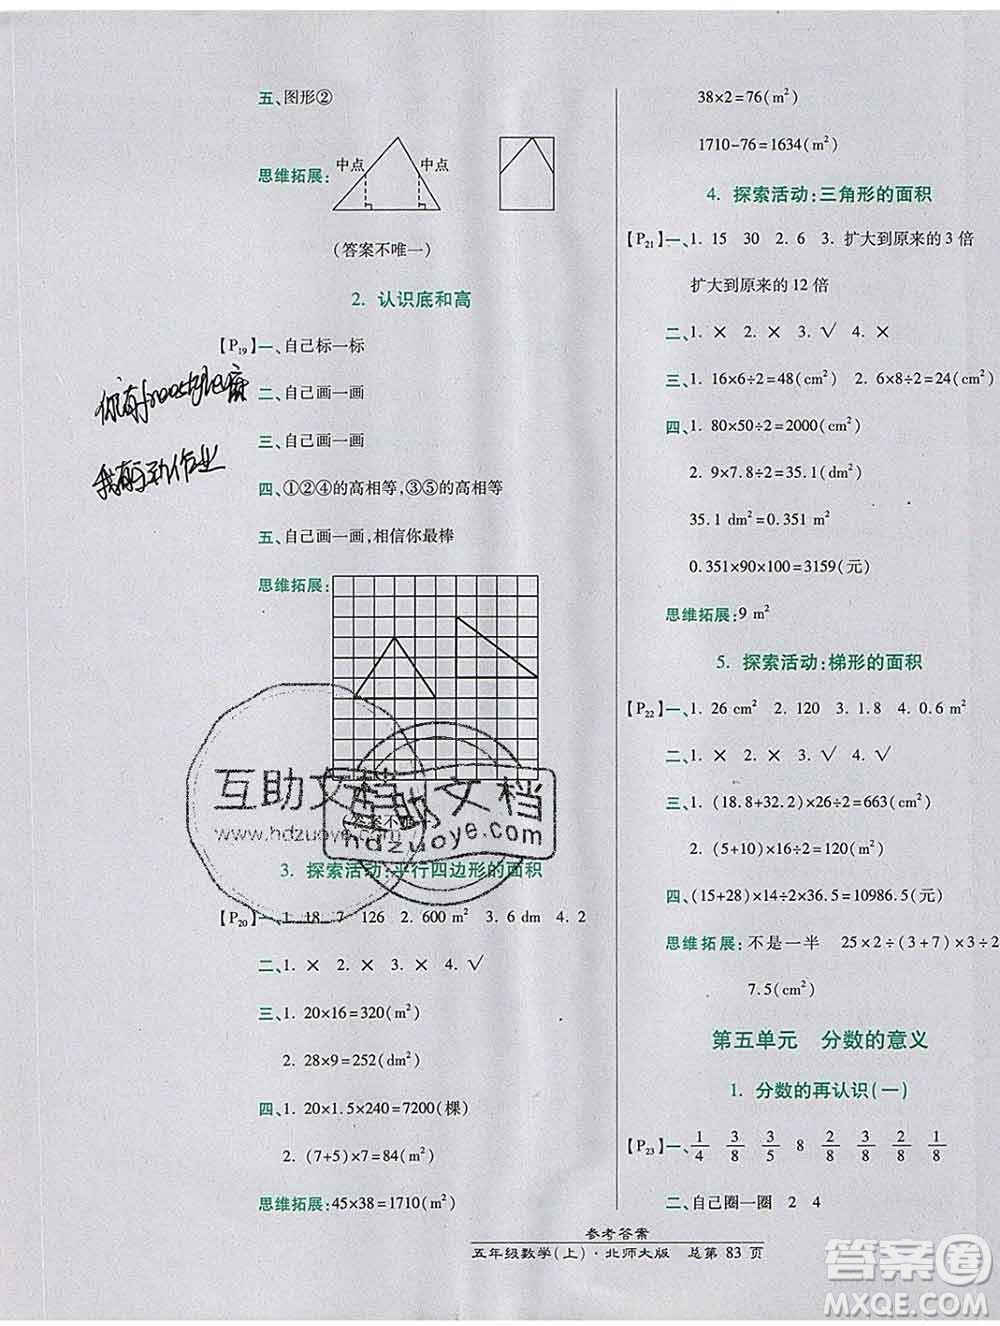 五、图形②
思维拓展:
中点 中点
(答案不唯一)
2. 认识底和高
【P19】一、自己标一标
二、自己画一画
三、自己画一画
四、①②④的高相等,③⑤的高相等
五、自己画一画,相信你最棒
思维拓展:
(答案不唯一)
3. 探索活动:平行四边形的面积
【P20】一、1. 18 7 126 2. 600 m² 3. 6 dm 4. 2
二、1. × 2. × 3. × 4. √
三、1. 20×16=320(m²)
2. 28×9=252(dm²)
四、1. 20×1.5×240=7200(棵)
2. (7+5)×7=84(m²)
思维拓展:45×38=1710(m²)
38×2=76(m²)
1710-76=1634(m²)
4. 探索活动:三角形的面积
【P21】一、1. 15 30 2. 6 3. 扩大到原来的3倍
扩大到原来的12倍
二、1. × 2. × 3. √ 4. ×
三、1. 16×6÷2=48(cm²) 2. 6×8÷2=24(cm²)
四、1. 80×50÷2=2000(cm²)
2. 9×7.8÷2=35.1(dm²)
35.1 dm²=0.351 m²
0.351×90×100=3159(元)
思维拓展:9 m²
5. 探索活动:梯形的面积
【P22】一、1. 26 cm² 2. 120 3. 1.8 4. 0.6 m²
二、1. × 2. × 3. √ 4. √
三、1. (18.8+32.2)×26÷2=663(cm²)
2. (5+10)×16÷2=120(cm²)
四、(15+28)×14÷2×36.5=10986.5(元)
思维拓展:不是一半 25×2÷(3+7)×3÷2
7.5(cm²)
第五单元 分数的意义
1. 分数的再认识(一)
【P23】一、1/4 3/8 3/5 8 2/8 3/8 2/8 1/8
二、自己圈一圈 2 4
参考答案
五年级数学(上)·北师大版 总第 83 页
互助文档
www.hdzuoye.com
互助文档
hdzuoye.com
答案圈
MXQE.COM